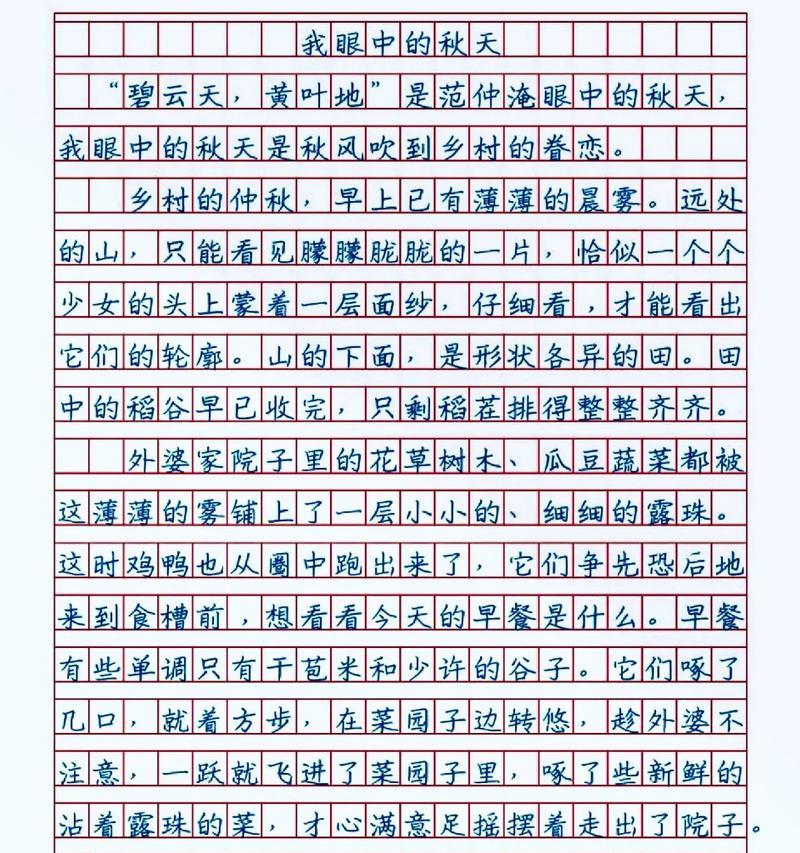 我眼中的秋天
“碧云天，黄叶地”是范仲淹眼中的秋天，
我眼中的秋天是秋风吹到乡村的眷恋。
乡村的仲秋，早上已有薄薄的晨雾。远处
的山，只能看见朦朦胧胧的一片，恰似一个个
少女的头上蒙着一层面纱，仔细看，才能看出
它们的轮廓。山的下面，是形状各异的田。田
中的稻谷早已收完，只剩稻茬排得整整齐齐。
外婆家院子里的花草树木、瓜豆蔬菜都被
这薄薄的雾铺上了一层小小的、细细的露珠。
这时鸡鸭也从圈中跑出来了，它们争先恐后地
来到食槽前，想看看今天的早餐是什么。早餐
有些单调只有干苞米和少许的谷子。它们啄了
几口，就着方步，在菜园子边转悠，趁外婆不
注意，一跃就飞进了菜园子里，啄了些新鲜的
沾着露珠的菜，才心满意足摇摆着走出了院子。